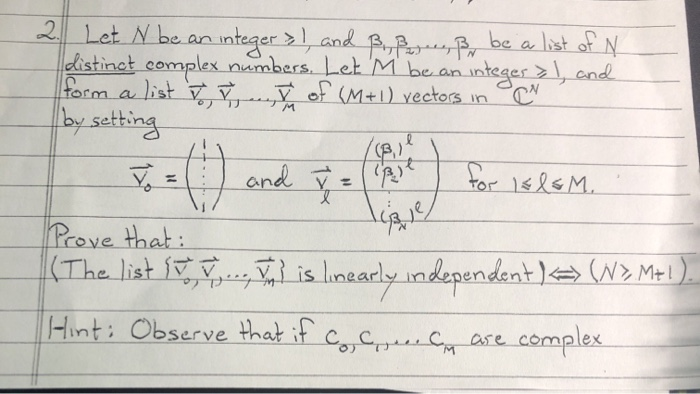 2. Let N be an integer ≥ 1, and β₁, β₂, ..., β_N be a list of N
distinct complex numbers. Let M be an integer ≥ 1, and
form a list v⃗₀, v⃗₁, ..., v⃗_M of (M+1) vectors in ℂᴺ
by setting
v⃗₀ = (1 1 ⋮ 1) and v⃗_ℓ = ((β₁)^ℓ (β₂)^ℓ ⋮ (β_N)^ℓ) for 1 ≤ ℓ ≤ M.
Prove that:
(The list {v⃗₀, v⃗₁, ..., v⃗_M} is linearly independent) ⟺ (N ≥ M+1).
Hint: Observe that if c₀, c₁, ... c_M are complex